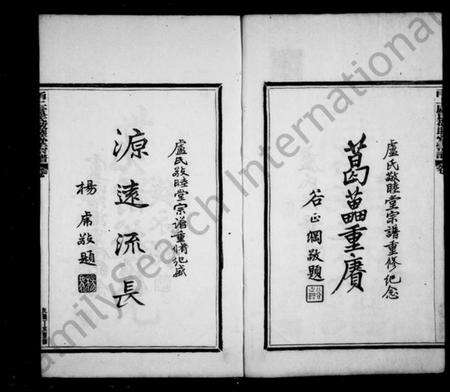 盧氏敬睦堂宗譜重修紀念
葛藟重賡
谷正綱敬題
盧氏敬睦堂宗譜重脩紀盛
源遠流長
楊席敬題
FamilySearch International